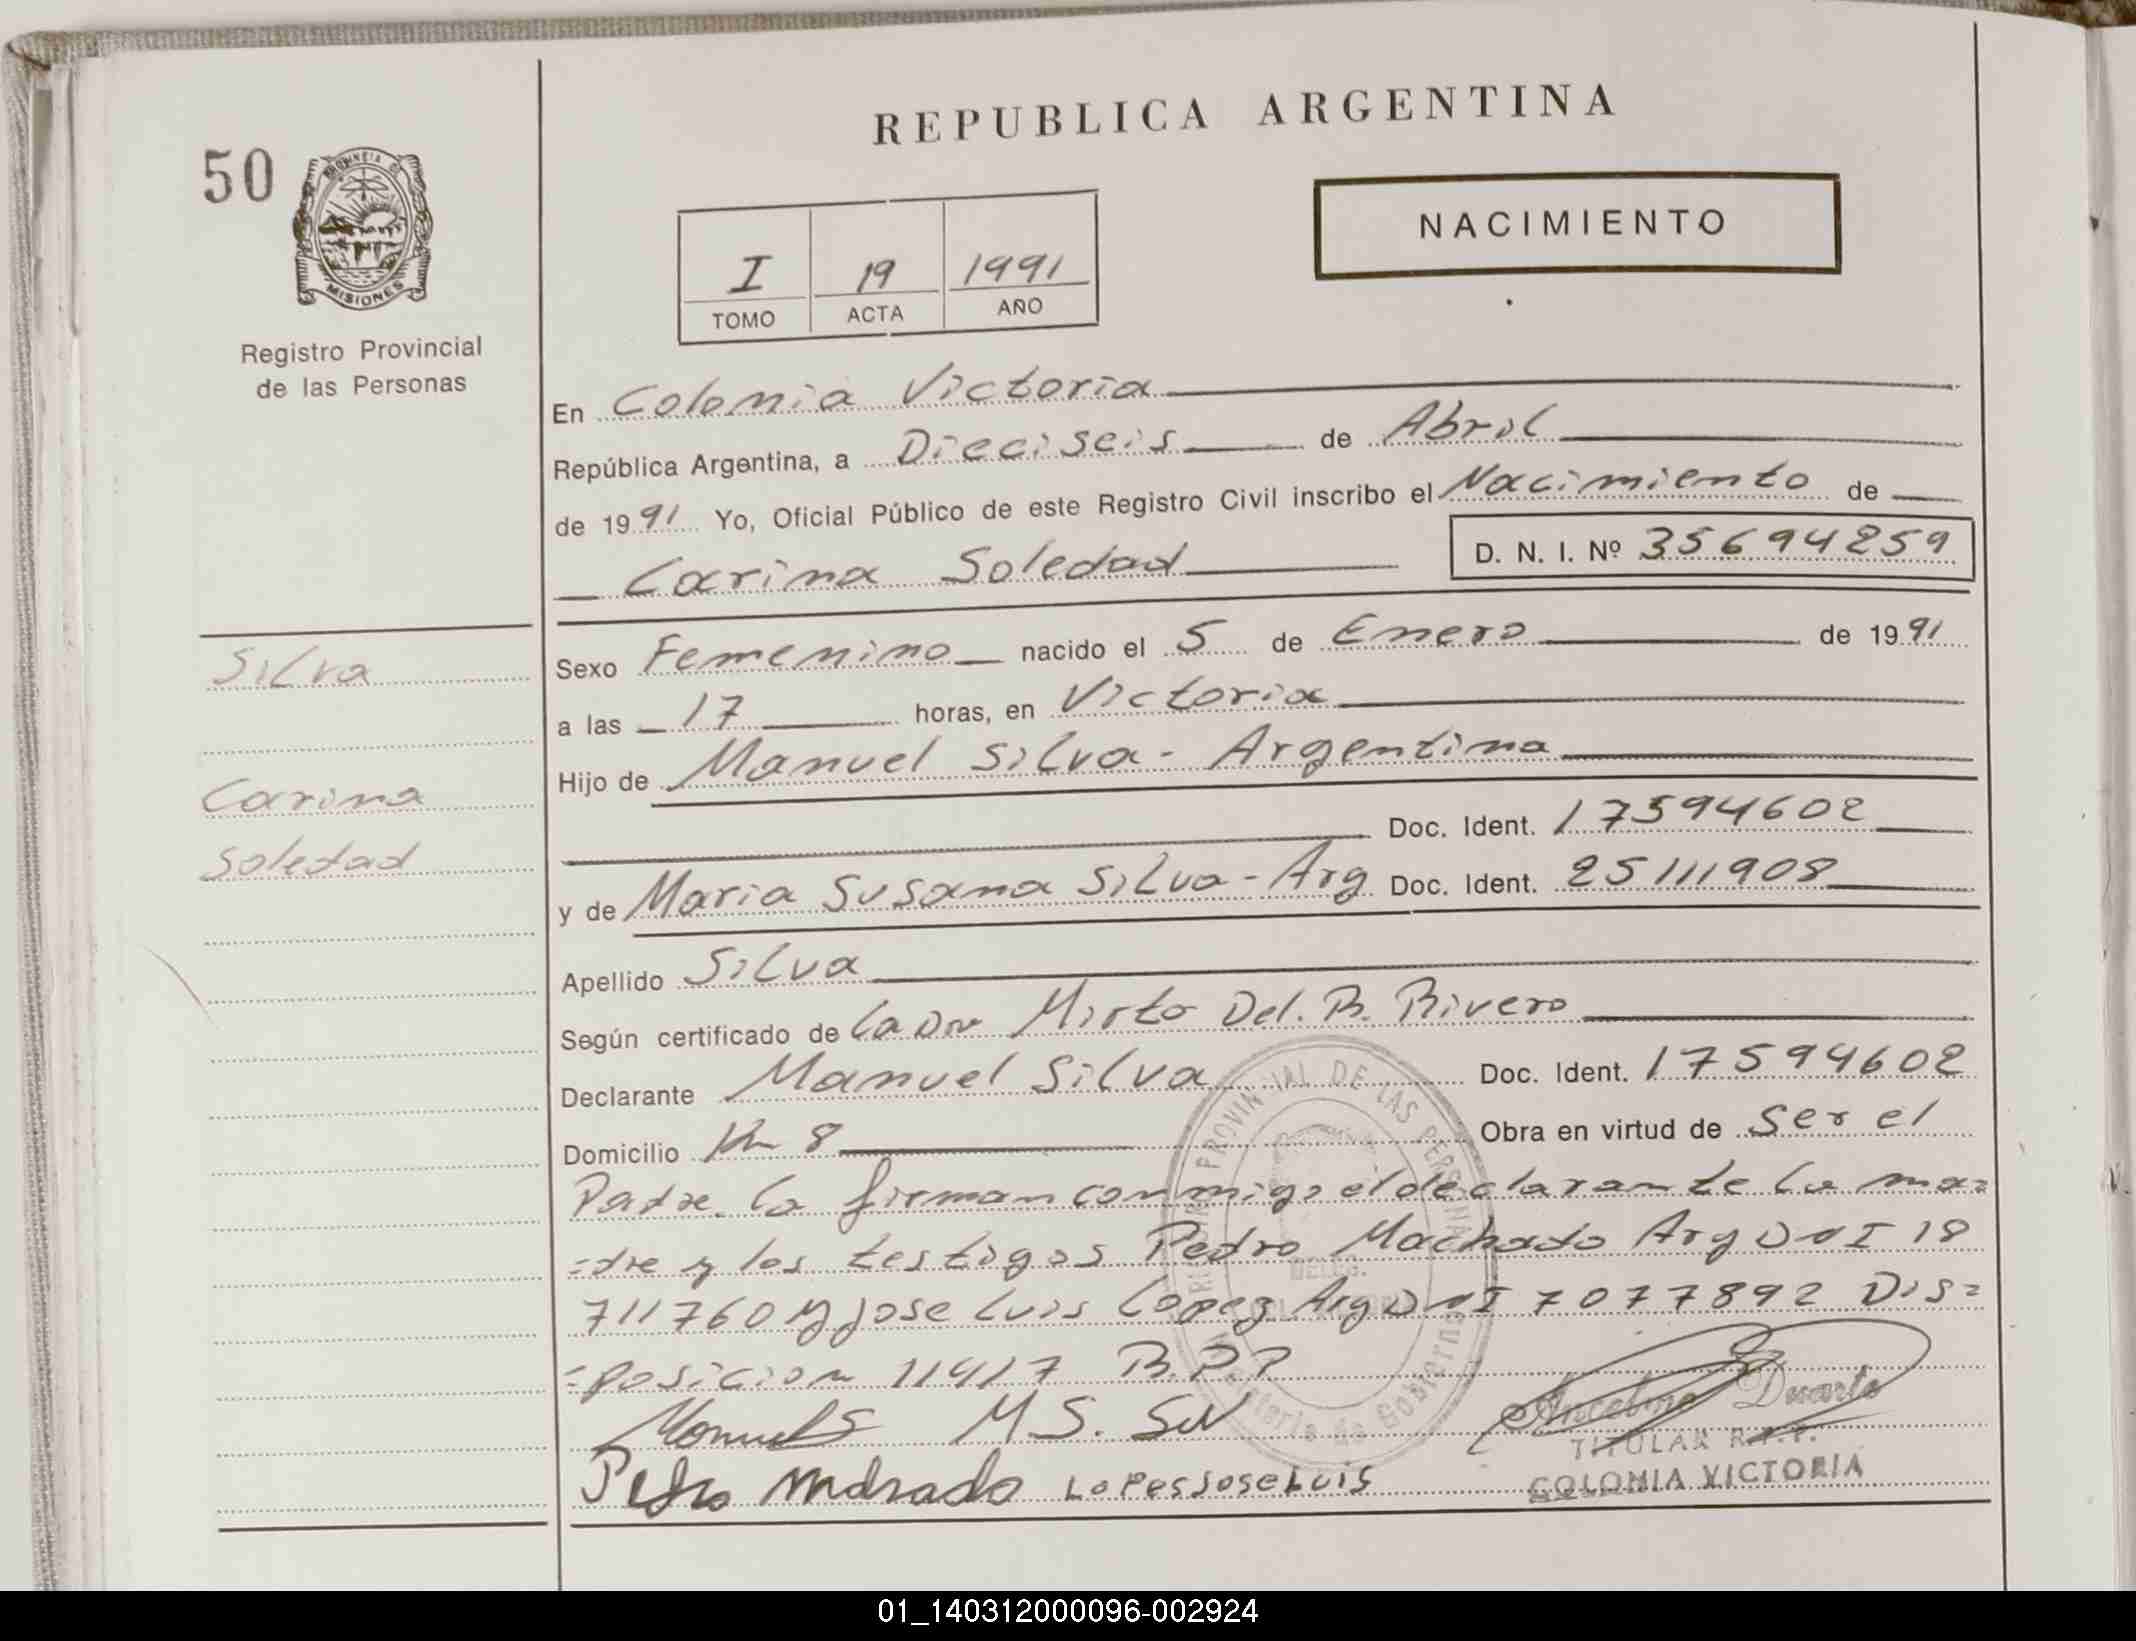 REPUBLICA ARGENTINA
50
PROVINCIA DE MISIONES
Registro Provincial
de las Personas
NACIMIENTO
I 19 1991
TOMO ACTA AÑO
En Colonia Victoria
República Argentina, a Dieciseis de Abril
de 1991 Yo, Oficial Público de este Registro Civil inscribo el Nacimiento de
Carina Soledad D. N. I. Nº 35694259
Silva
Carina
Soledad
Sexo Femenino nacido el 5 de Enero de 1991
a las 17 horas, en Victoria
Hijo de Manuel Silva - Argentina
Doc. Ident. 17594602
y de Maria Susana Silva - Arg Doc. Ident. 25111908
Apellido Silva
Según certificado de la Dra Mirta Del. R. Rivero
Declarante Manuel Silva Doc. Ident. 17594602
Domicilio Km 8 Obra en virtud de Ser el
Padre. la firman conmigo el declarante la ma=
=dre y los testigos Pedro Machado Arg DNI 18
711760 y Jose Luis Lopez Arg DNI 7077892 Dis=
=posicion 11417 R.P.P
Manuel S M S. Sil
Pedro Lopes Jose Luis
Ancelmo Duarte
TITULAR R.P.P.
COLONIA VICTORIA
01_140312000096-002924